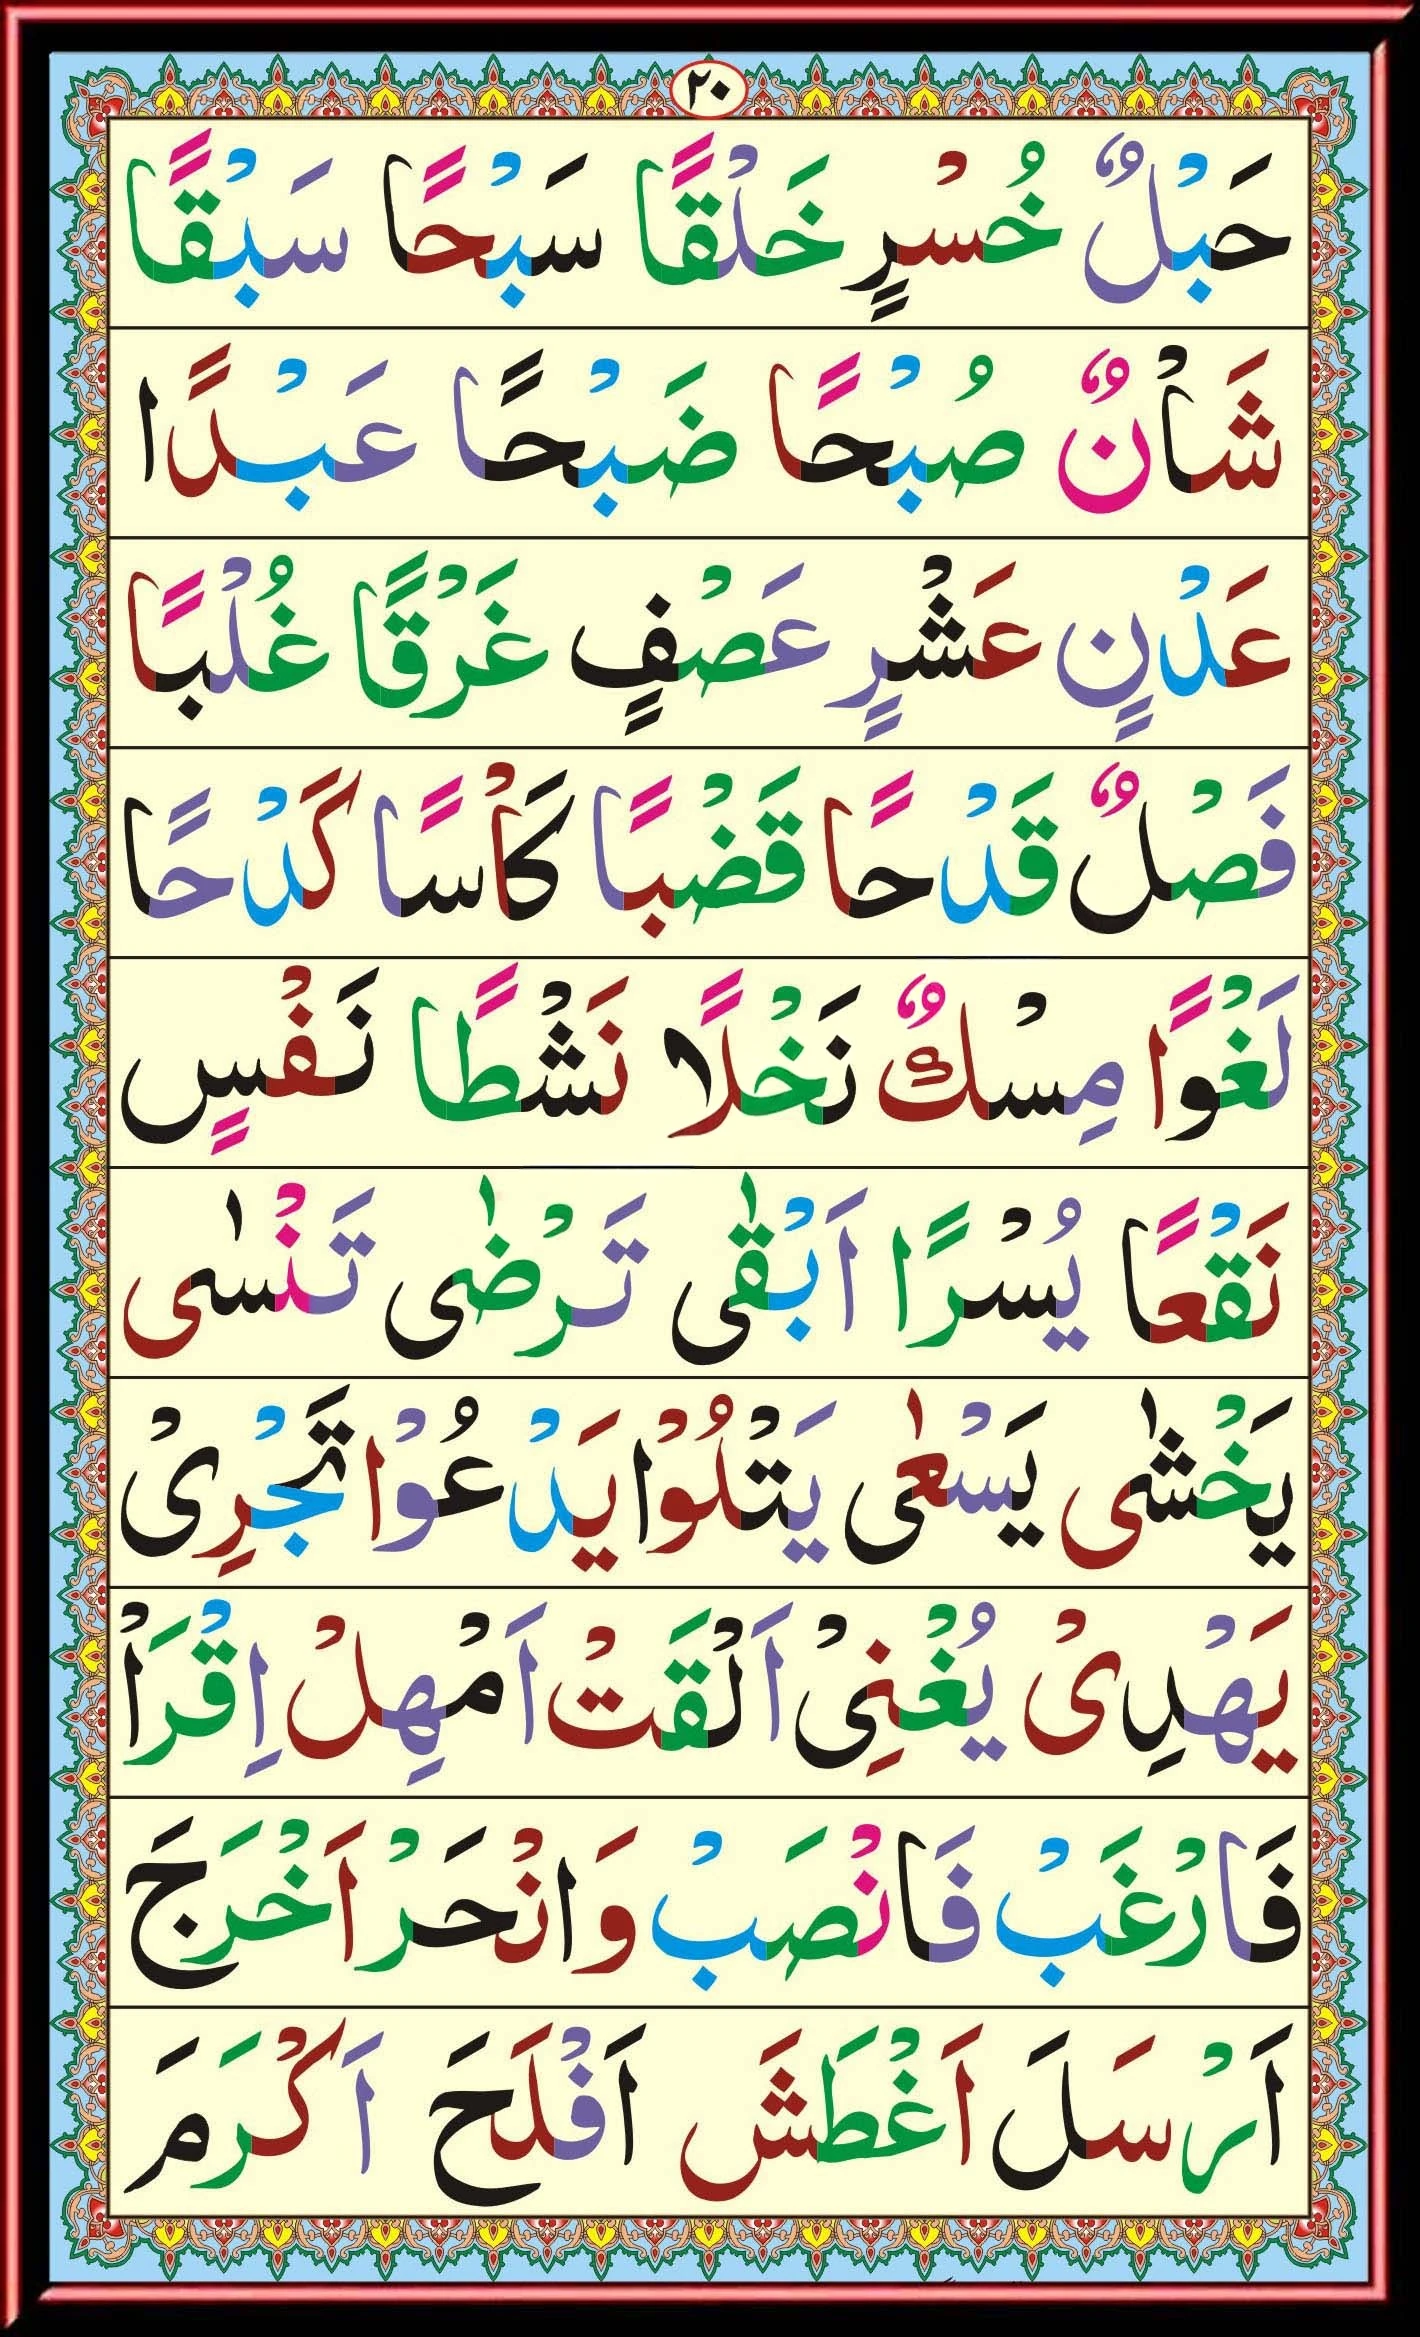 ٢٠
حَبْلٌ خُسْرٍ خَلْقًا سَبْحًا سَبْقًا
شَاْنٌ صُبْحًا ضَبْحًا عَبْدًا
عَدْنٍ عَشْرٍ عَصْفٍ غَرْقًا غُلْبًا
فَصْلٌ قَدْحًا قَضْبًا كَاْسًا كَدْحًا
لَغْوًا مِسْكٌ نَخْلًا نَشْطًا نَفْسٍ
نَقْعًا يُسْرًا اَبْقٰى تَرْضٰى تَنْسٰى
يَخْشٰى يَسْعٰى يَتْلُوْا يَدْعُوْا تَجْرِىْ
يَهْدِىْ يُغْنِىْ اَلْقَتْ اَمْهِلْ اِقْرَاْ
فَارْغَبْ فَانْصَبْ وَانْحَرْ اَخْرَجَ
اَرْسَلَ اَغْطَشَ اَفْلَحَ اَكْرَمَ